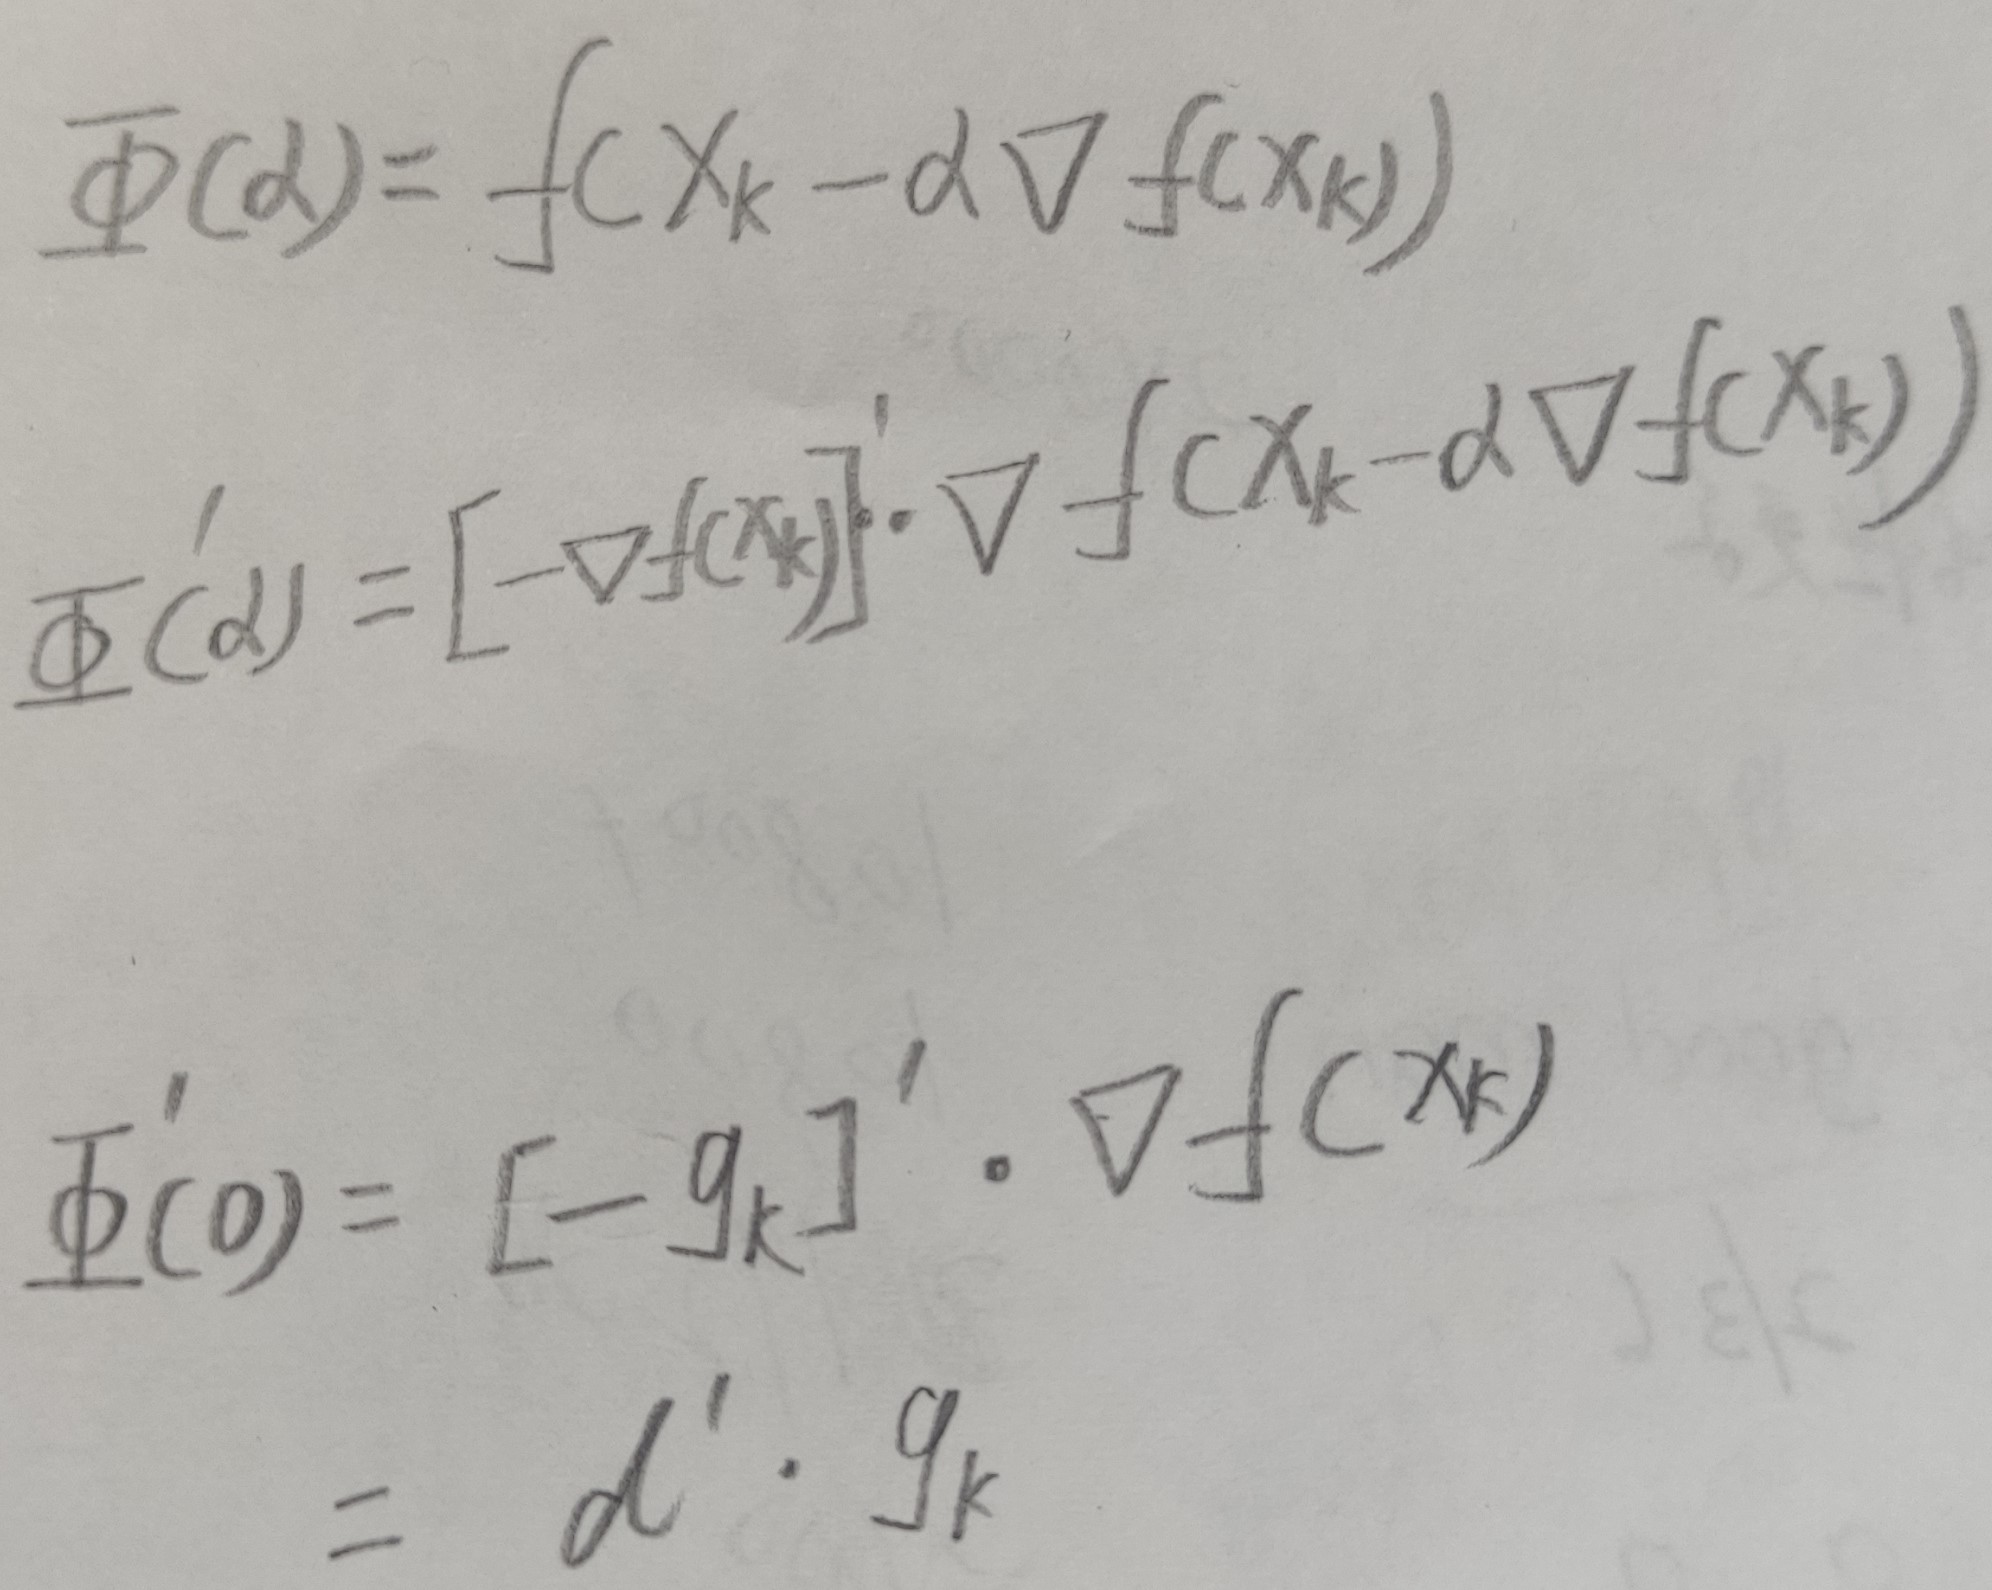 Φ(α) = f(x_k − α∇f(x_k))
Φ'(α) = [−∇f(x_k)]' · ∇f(x_k − α∇f(x_k))
Φ'(0) = [−g_k]' · ∇f(x_k)
= d' · g_k